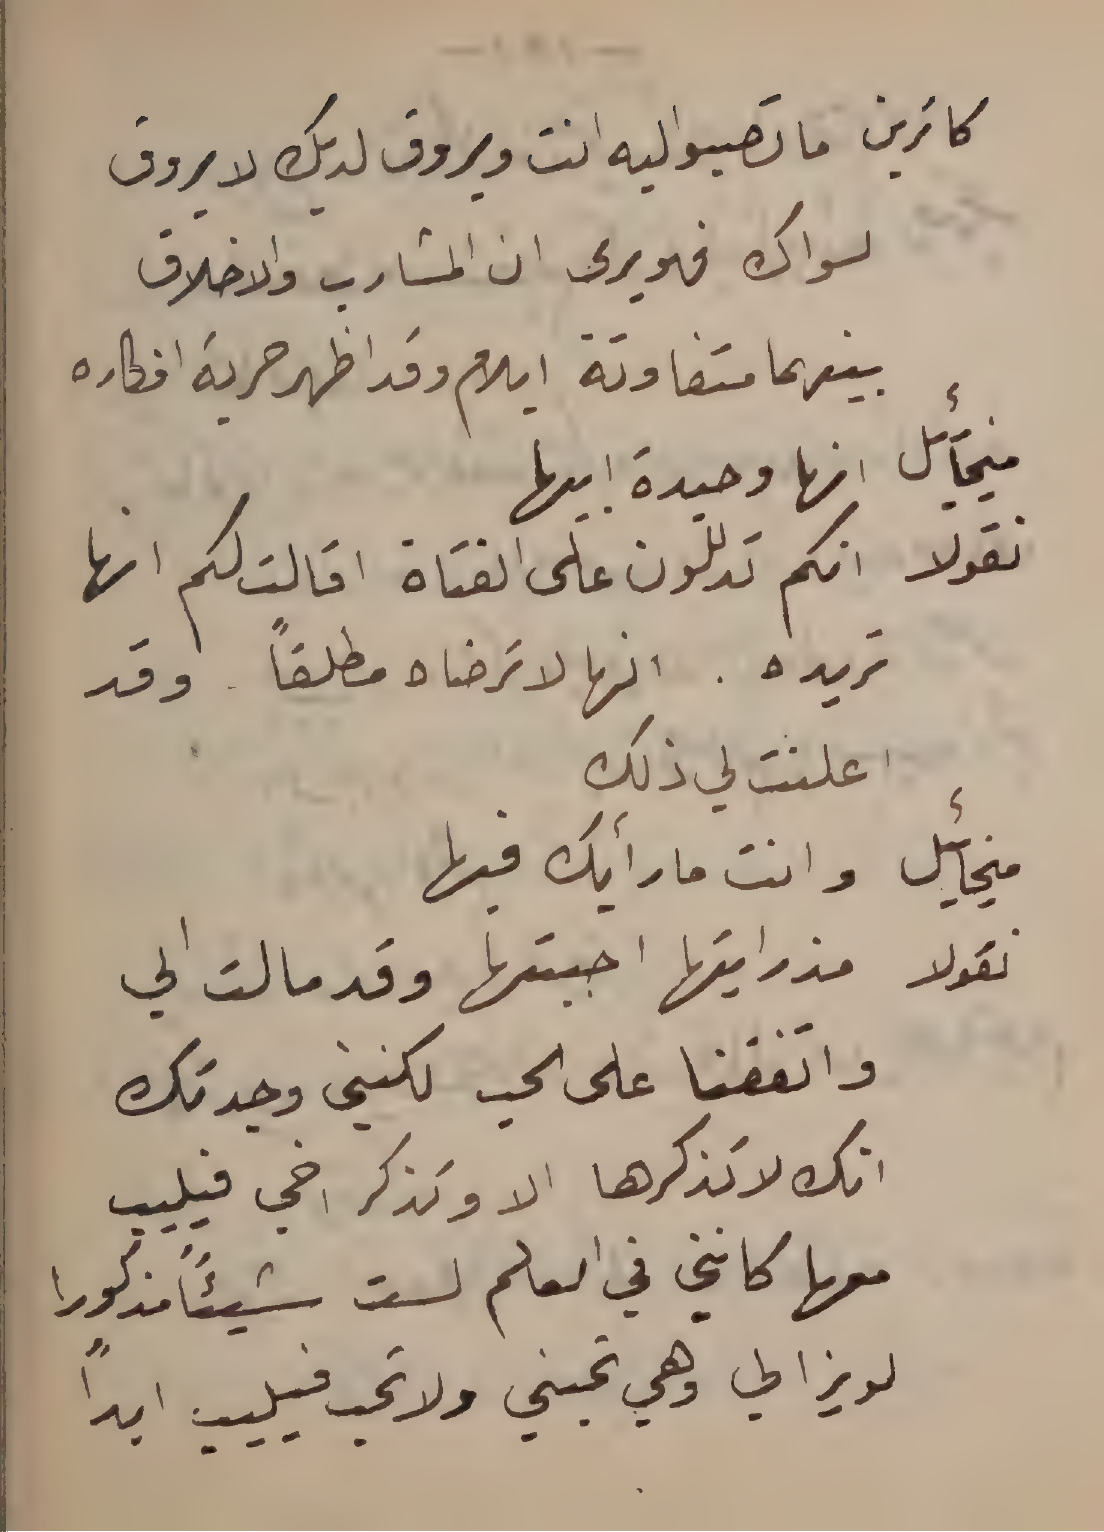 كاترين ما تصبو اليه انت ويروق لديك لا يروق
لسواك فهو يرى ان المشارب والاخلاق
بينهما متفاوتة ايلام وقد اظهر حرية افكاره
ميخائيل انها وحيدة ابيها
نقولا انكم تدللون على الفتاة اقالت لكم انها
تريده . انها لا ترضاه مطلقاً . وقد
اعلنت لي ذلك
ميخائيل وانت ما رأيك فيها
نقولا مذ رايتها احببتها وقد مالت الي
واتفقنا على الحب لكنني وجدتك
انك لا تذكرها الا وتذكر اخي فيليب
معها كانني في العالم لست شيئاً مذكورا
لويزا لي وهي تحبني ولا تحب فيليب ابداً